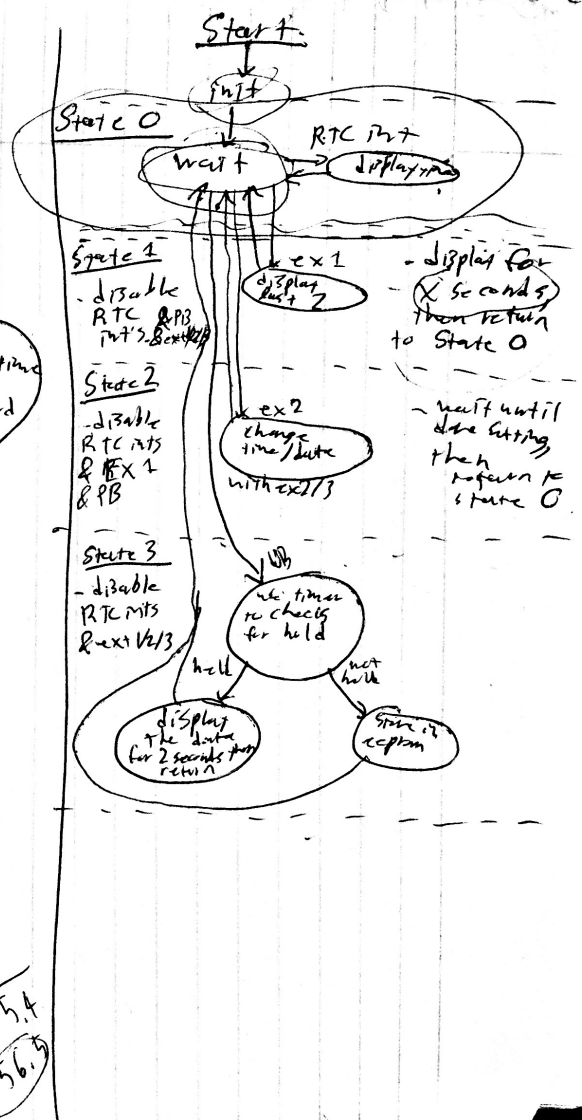 Start
init
State 0
wait
RTC int
display time
State 1
- disable
RTC & PB
int's & ext 2/3
ex 1
display
last 2
- display for
X seconds,
then return
to State 0
State 2
- disable
RTC ints
& EX 1
& PB
ex2
change
time/date
with ex2/3
- wait until
done setting,
then
return to
state 0
State 3
- disable
RTC ints
& ext 1/2/3
PB
use timer
to check
for hold
held
not
held
display
the date
for 2 seconds then
return
store in
eeprom
time
d
5.4
56.5